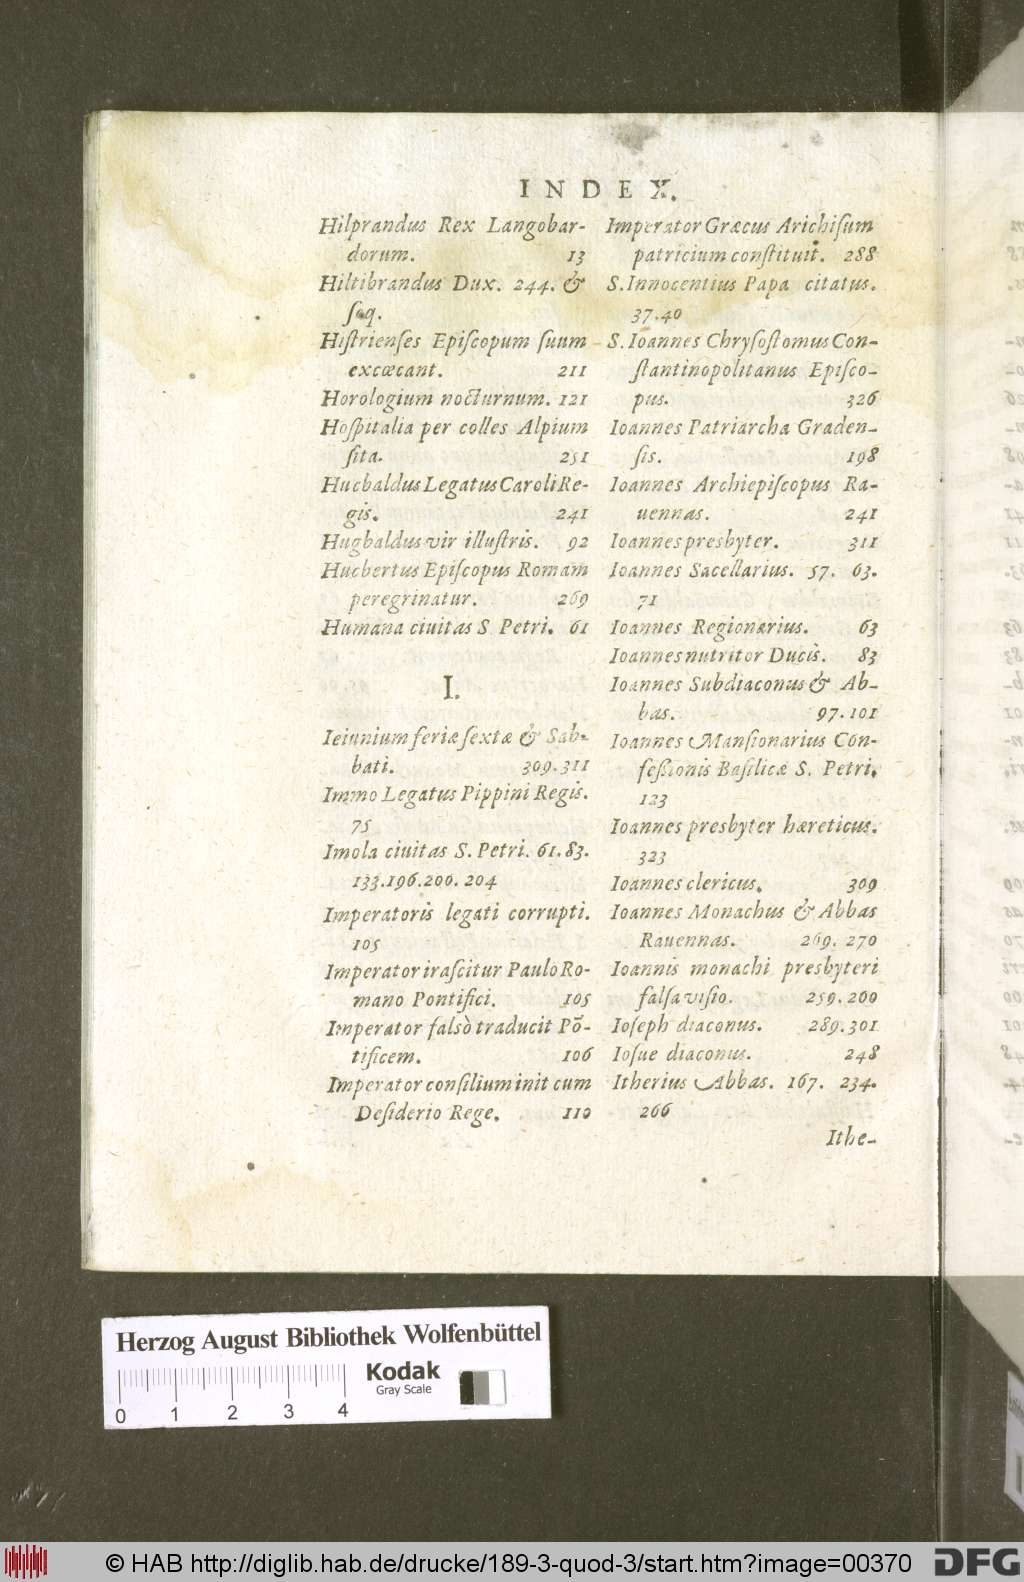 INDEX.
Hilprandus Rex Langobar-
dorum. 13
Hiltibrandus Dux. 244. &
ſeq.
Hiſtrienſes Epiſcopum ſuum
excæcant. 211
Horologium nocturnum. 121
Hoſpitalia per colles Alpium
ſita. 251
Hucbaldus Legatus Caroli Re-
gis. 241
Hugbaldus vir illuſtris. 92
Hucbertus Epiſcopus Romam
peregrinatur. 269
Humana ciuitas S. Petri. 61
I.
Ieiunium feriæ ſextæ & Sab-
bati. 309.311
Immo Legatus Pippini Regis.
75
Imola ciuitas S. Petri. 61.83.
133.196.200.204
Imperatoris legati corrupti.
105
Imperator iraſcitur Paulo Ro-
mano Pontifici. 105
Imperator falsò traducit Põ-
tificem. 106
Imperator conſilium init cum
Deſiderio Rege. 110
Imperator Græcus Arichiſum
patricium conſtituit. 288
S. Innocentius Papa citatus.
37.40
S. Ioannes Chryſoſtomus Con-
ſtantinopolitanus Epiſco-
pus. 326
Ioannes Patriarcha Graden-
ſis. 198
Ioannes Archiepiſcopus Ra-
uennas. 241
Ioannes presbyter. 311
Ioannes Sacellarius. 57. 63.
71
Ioannes Regionarius. 63
Ioannes nutritor Ducis. 83
Ioannes Subdiaconus & Ab-
bas. 97.101
Ioannes Manſionarius Con-
feſſionis Baſilicæ S. Petri.
123
Ioannes presbyter hæreticus.
323
Ioannes clericus. 309
Ioannes Monachus & Abbas
Rauennas. 269. 270
Ioannis monachi presbyteri
falſa viſio. 259.260
Ioſeph diaconus. 289.301
Ioſue diaconus. 248
Itherius Abbas. 167. 234.
266
Ithe-
Herzog August Bibliothek Wolfenbüttel
Kodak
Gray Scale
0 1 2 3 4
© HAB http://diglib.hab.de/drucke/189-3-quod-3/start.htm?image=00370
DFG